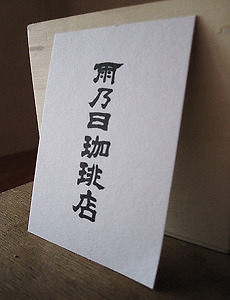 雨乃日珈琲店